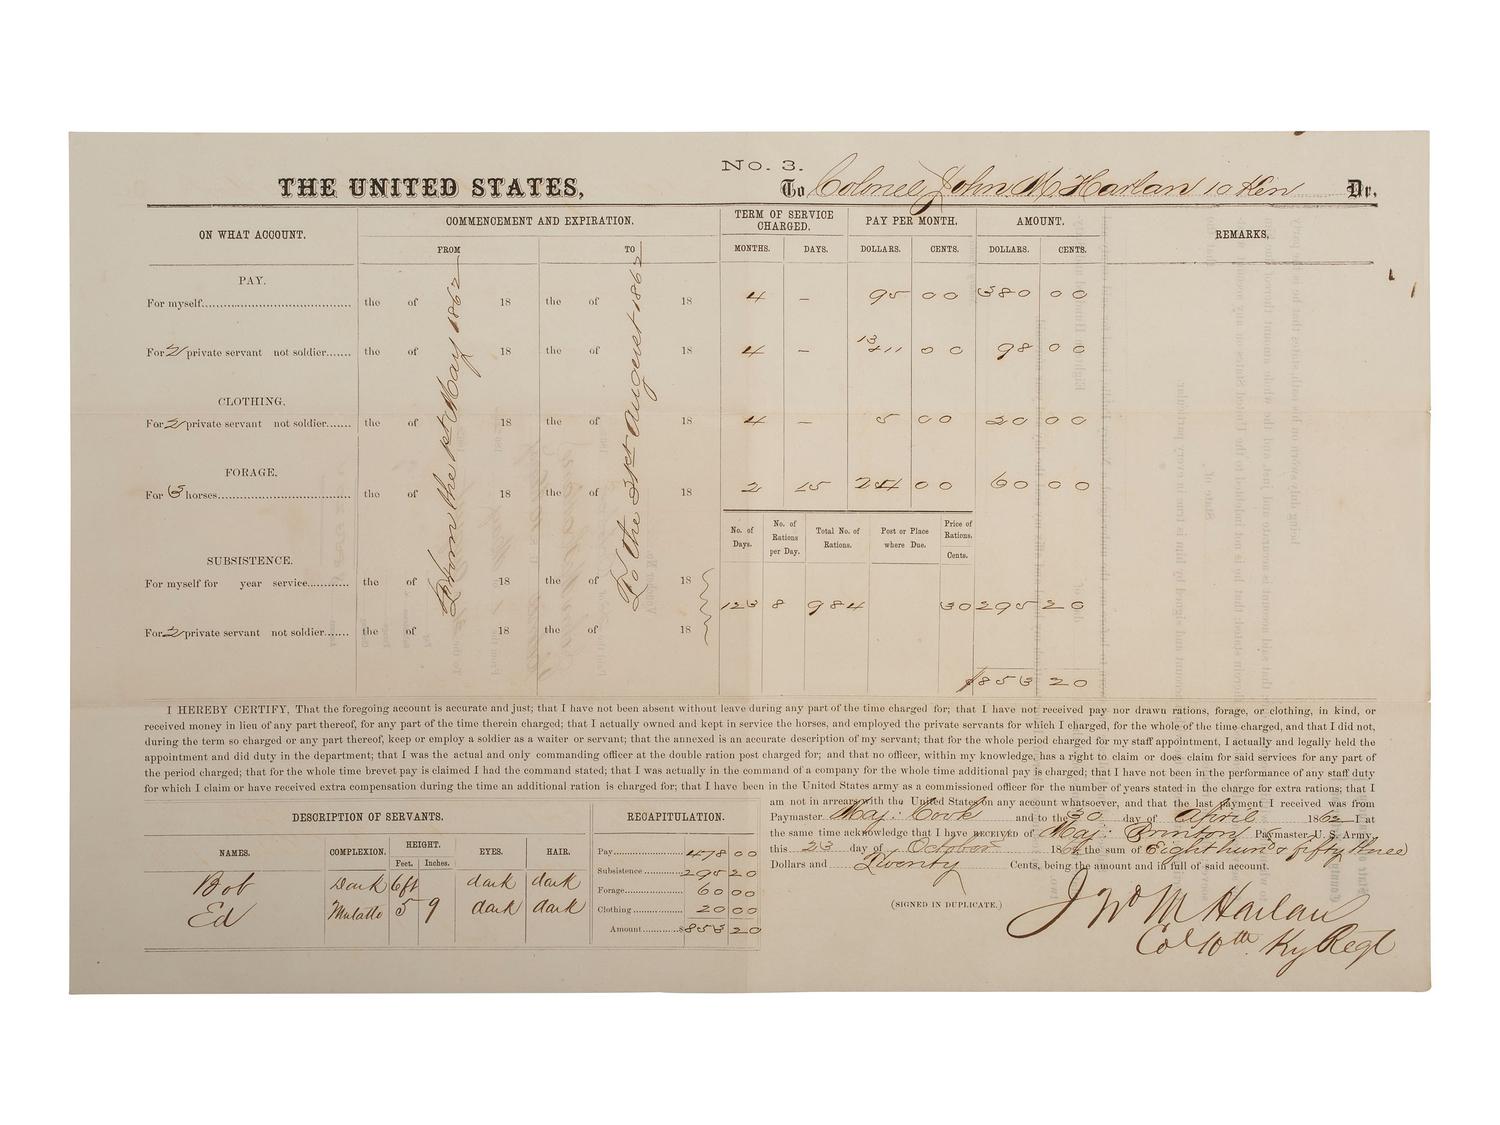 No. 3.
THE UNITED STATES, To Colonel John M Harlan 10 Ken Dr.
ON WHAT ACCOUNT. COMMENCEMENT AND EXPIRATION. TERM OF SERVICE CHARGED. PAY PER MONTH. AMOUNT. REMARKS,
FROM TO MONTHS. DAYS. DOLLARS. CENTS. DOLLARS. CENTS.
From the 1st May 1862
To the 31st August 1862
PAY.
For myself the of 18 the of 18 4 – 95 00 380 00
For 2 private servant not soldier the of 18 the of 18 4 – 13 11 00 98 00
CLOTHING,
For 2 private servant not soldier the of 18 the of 18 4 – 5 00 20 00
FORAGE.
For 3 horses the of 18 the of 18 2 15 24 00 60 00
No. of Days. No. of Rations per Day. Total No. of Rations. Post or Place where Due. Price of Rations. Cents.
SUBSISTENCE.
For myself for year service the of 18 the of 18
123 8 984 30 295 20
For 2 private servant not soldier the of 18 the of 18
$853 20
I HEREBY CERTIFY, That the foregoing account is accurate and just; that I have not been absent without leave during any part of the time charged for; that I have not received pay nor drawn rations, forage, or clothing, in kind, or
received money in lieu of any part thereof, for any part of the time therein charged; that I actually owned and kept in service the horses, and employed the private servants for which I charged, for the whole of the time charged, and that I did not,
during the term so charged or any part thereof, keep or employ a soldier as a waiter or servant; that the annexed is an accurate description of my servant; that for the whole period charged for my staff appointment, I actually and legally held the
appointment and did duty in the department; that I was the actual and only commanding officer at the double ration post charged for; and that no officer, within my knowledge, has a right to claim or does claim for said services for any part of
the period charged; that for the whole time brevet pay is claimed I had the command stated; that I was actually in the command of a company for the whole time additional pay is charged; that I have not been in the performance of any staff duty
for which I claim or have received extra compensation during the time an additional ration is charged for; that I have been in the United States army as a commissioned officer for the number of years stated in the charge for extra rations; that I
am not in arrears with the United States on any account whatsoever, and that the last payment I received was from
Paymaster Maj: Cook and to the 30 day of April 1862 I at
the same time acknowledge that I have RECEIVED of Maj: Brinton Paymaster U. S. Army,
this 23 day of October 1862 the sum of Eight hund & fifty three
Dollars and Twenty Cents, being the amount and in full of said account.
(SIGNED IN DUPLICATE.)
Jno M Harlan
Col 10th Ky Regt
DESCRIPTION OF SERVANTS.
NAMES. COMPLEXION. HEIGHT. Feet. Inches. EYES. HAIR.
Bob Dark 6ft dark dark
Ed Mulatto 5 9 dark dark
RECAPITULATION.
Pay 478 00
Subsistence 295 20
Forage 60 00
Clothing 20 00
Amount $853 20